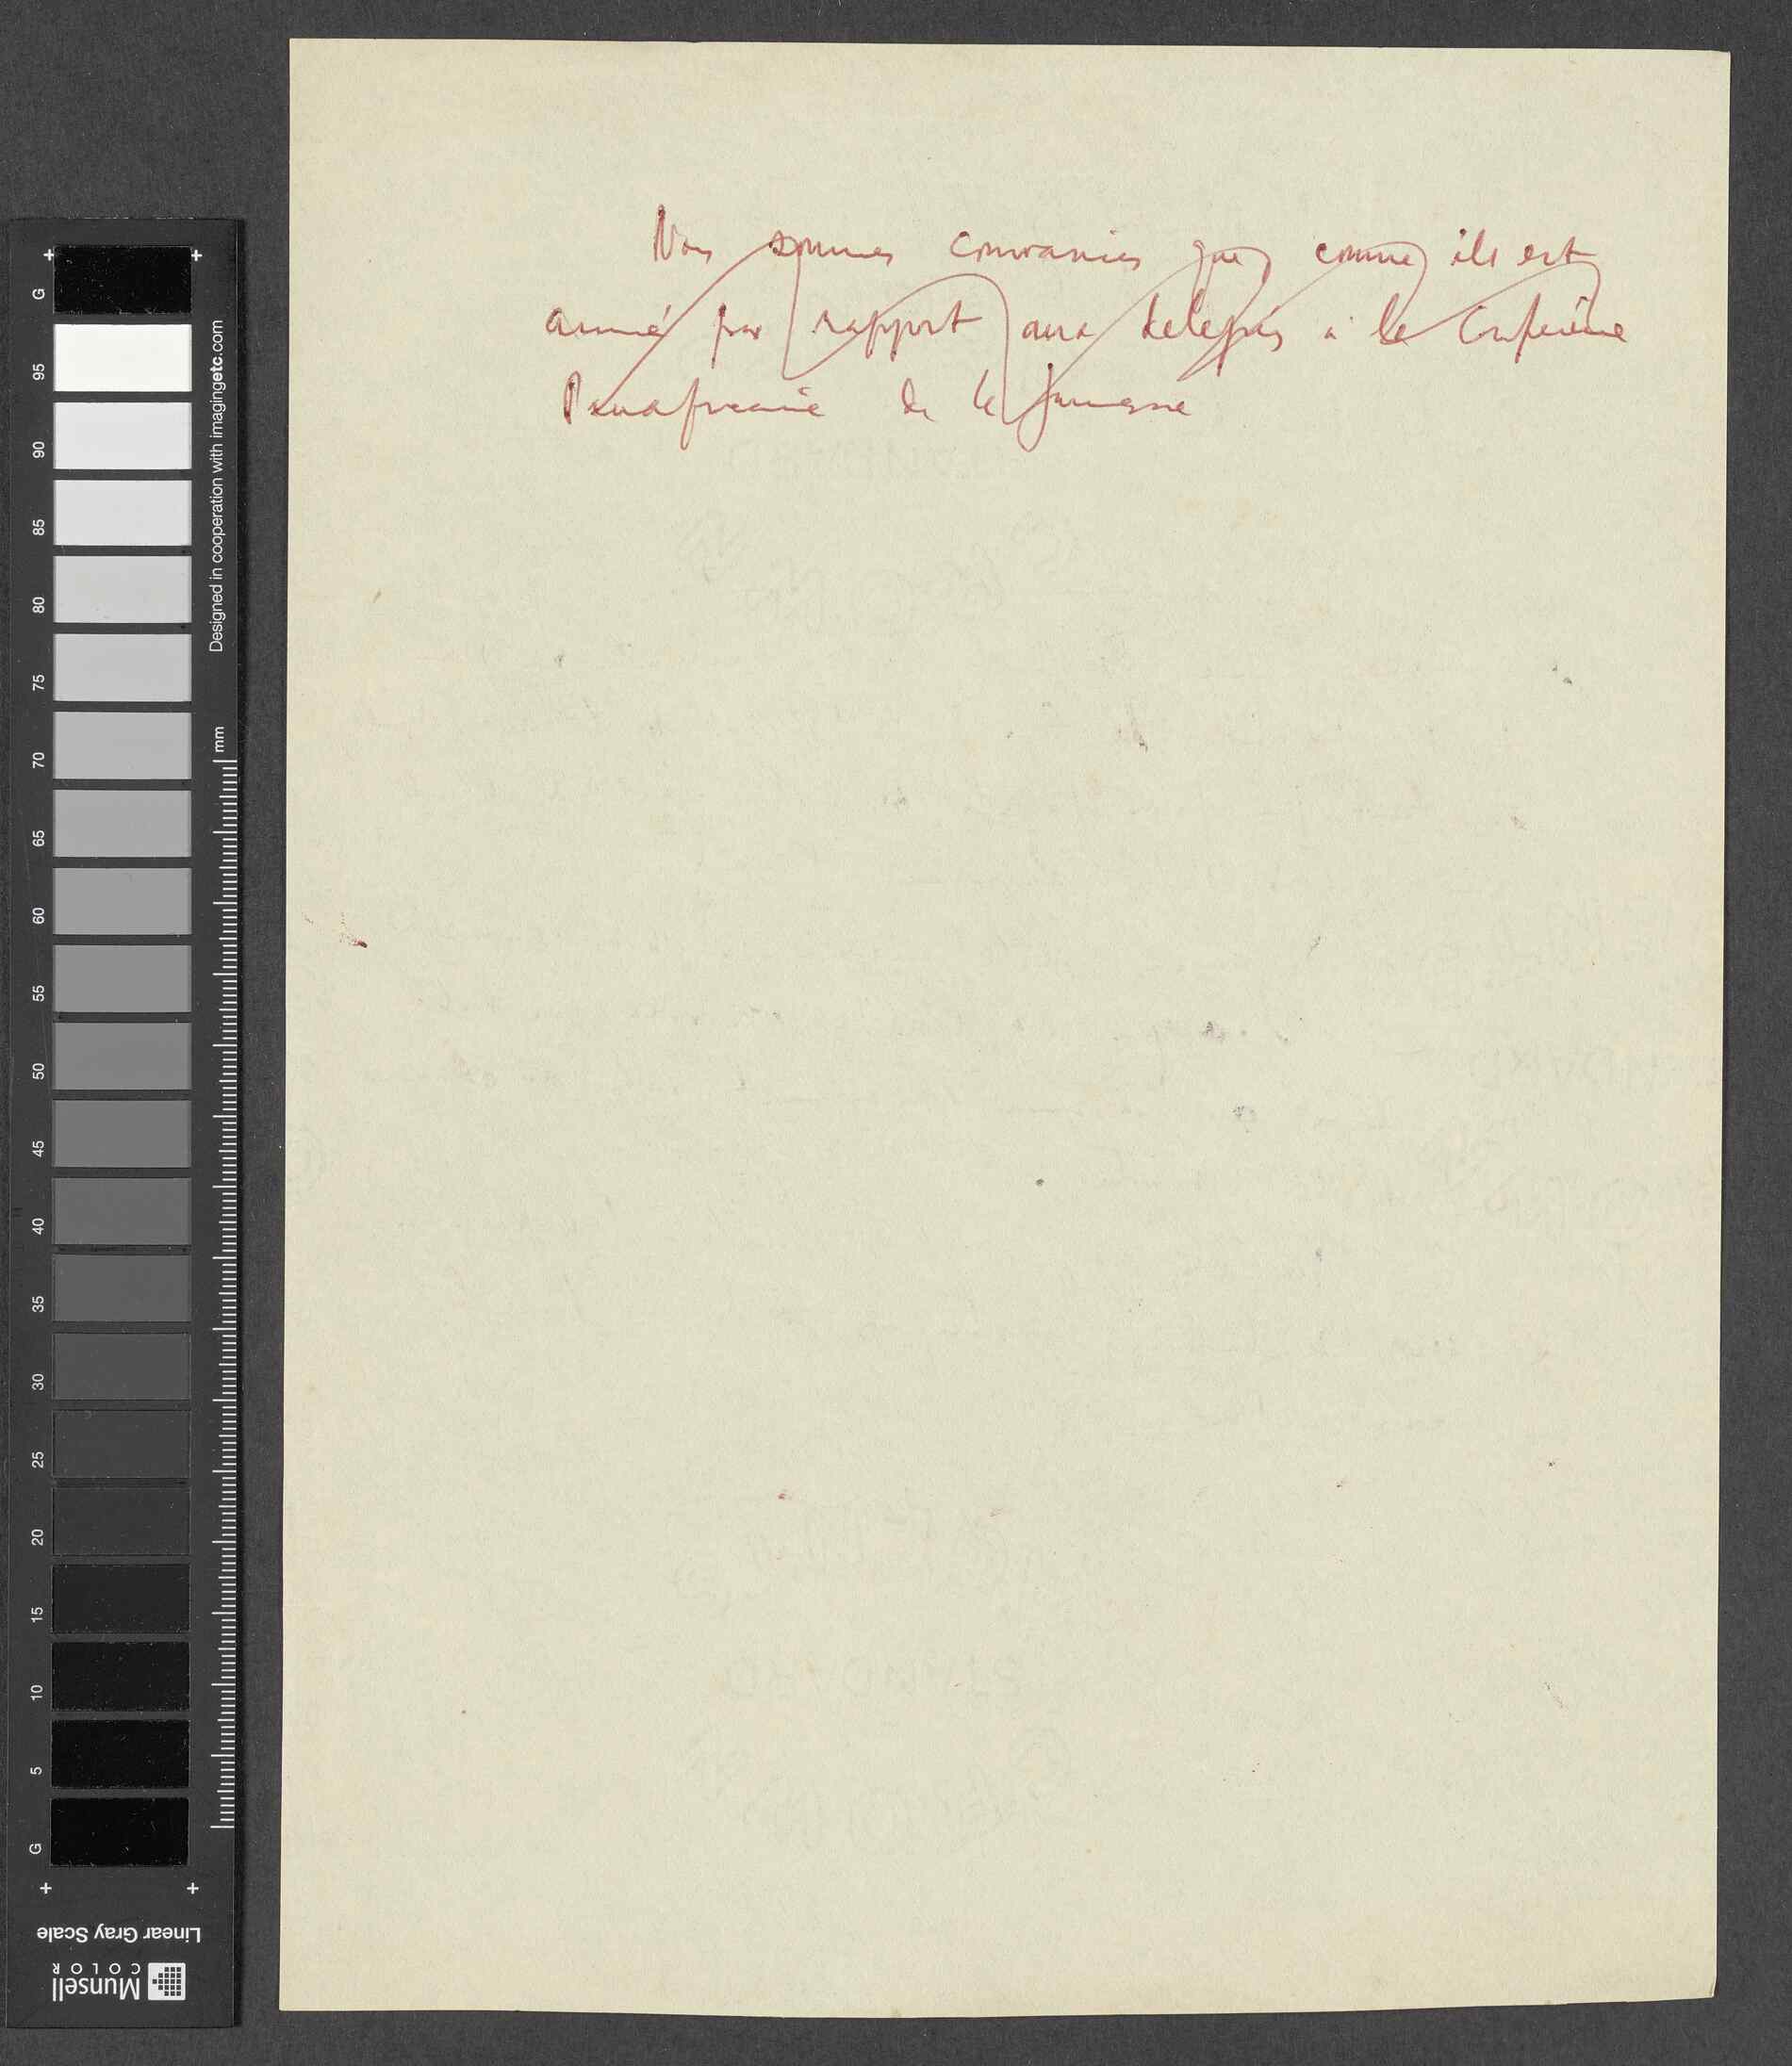 Nous sommes convaincus que, comme, il est
arrivé par rapport aux délégués à la Conférence
Panafricaine de la Jeunesse
G
95
90
85
80
75
70
65
60
55
50
45
40
35
30
25
20
15
10
5
G
Designed in cooperation with imagingetc.com
mm
Linear Gray Scale
Munsell
COLOR